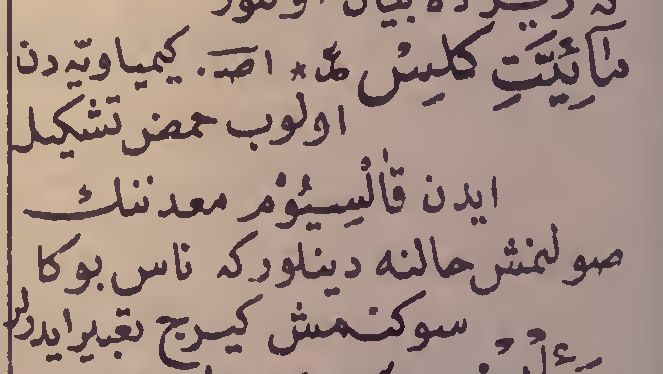 در بیان اولنور
مَائِیَّتِ كلِسْ * اصـ. كیمیاویه دن
اولوب حمض تشكیل
ایدن قَالْسِیُوْم معدننك
صولنمش حالنه دینلور كه ناس بوكا
سوكنمش كیرج تعبیر ایدرلر